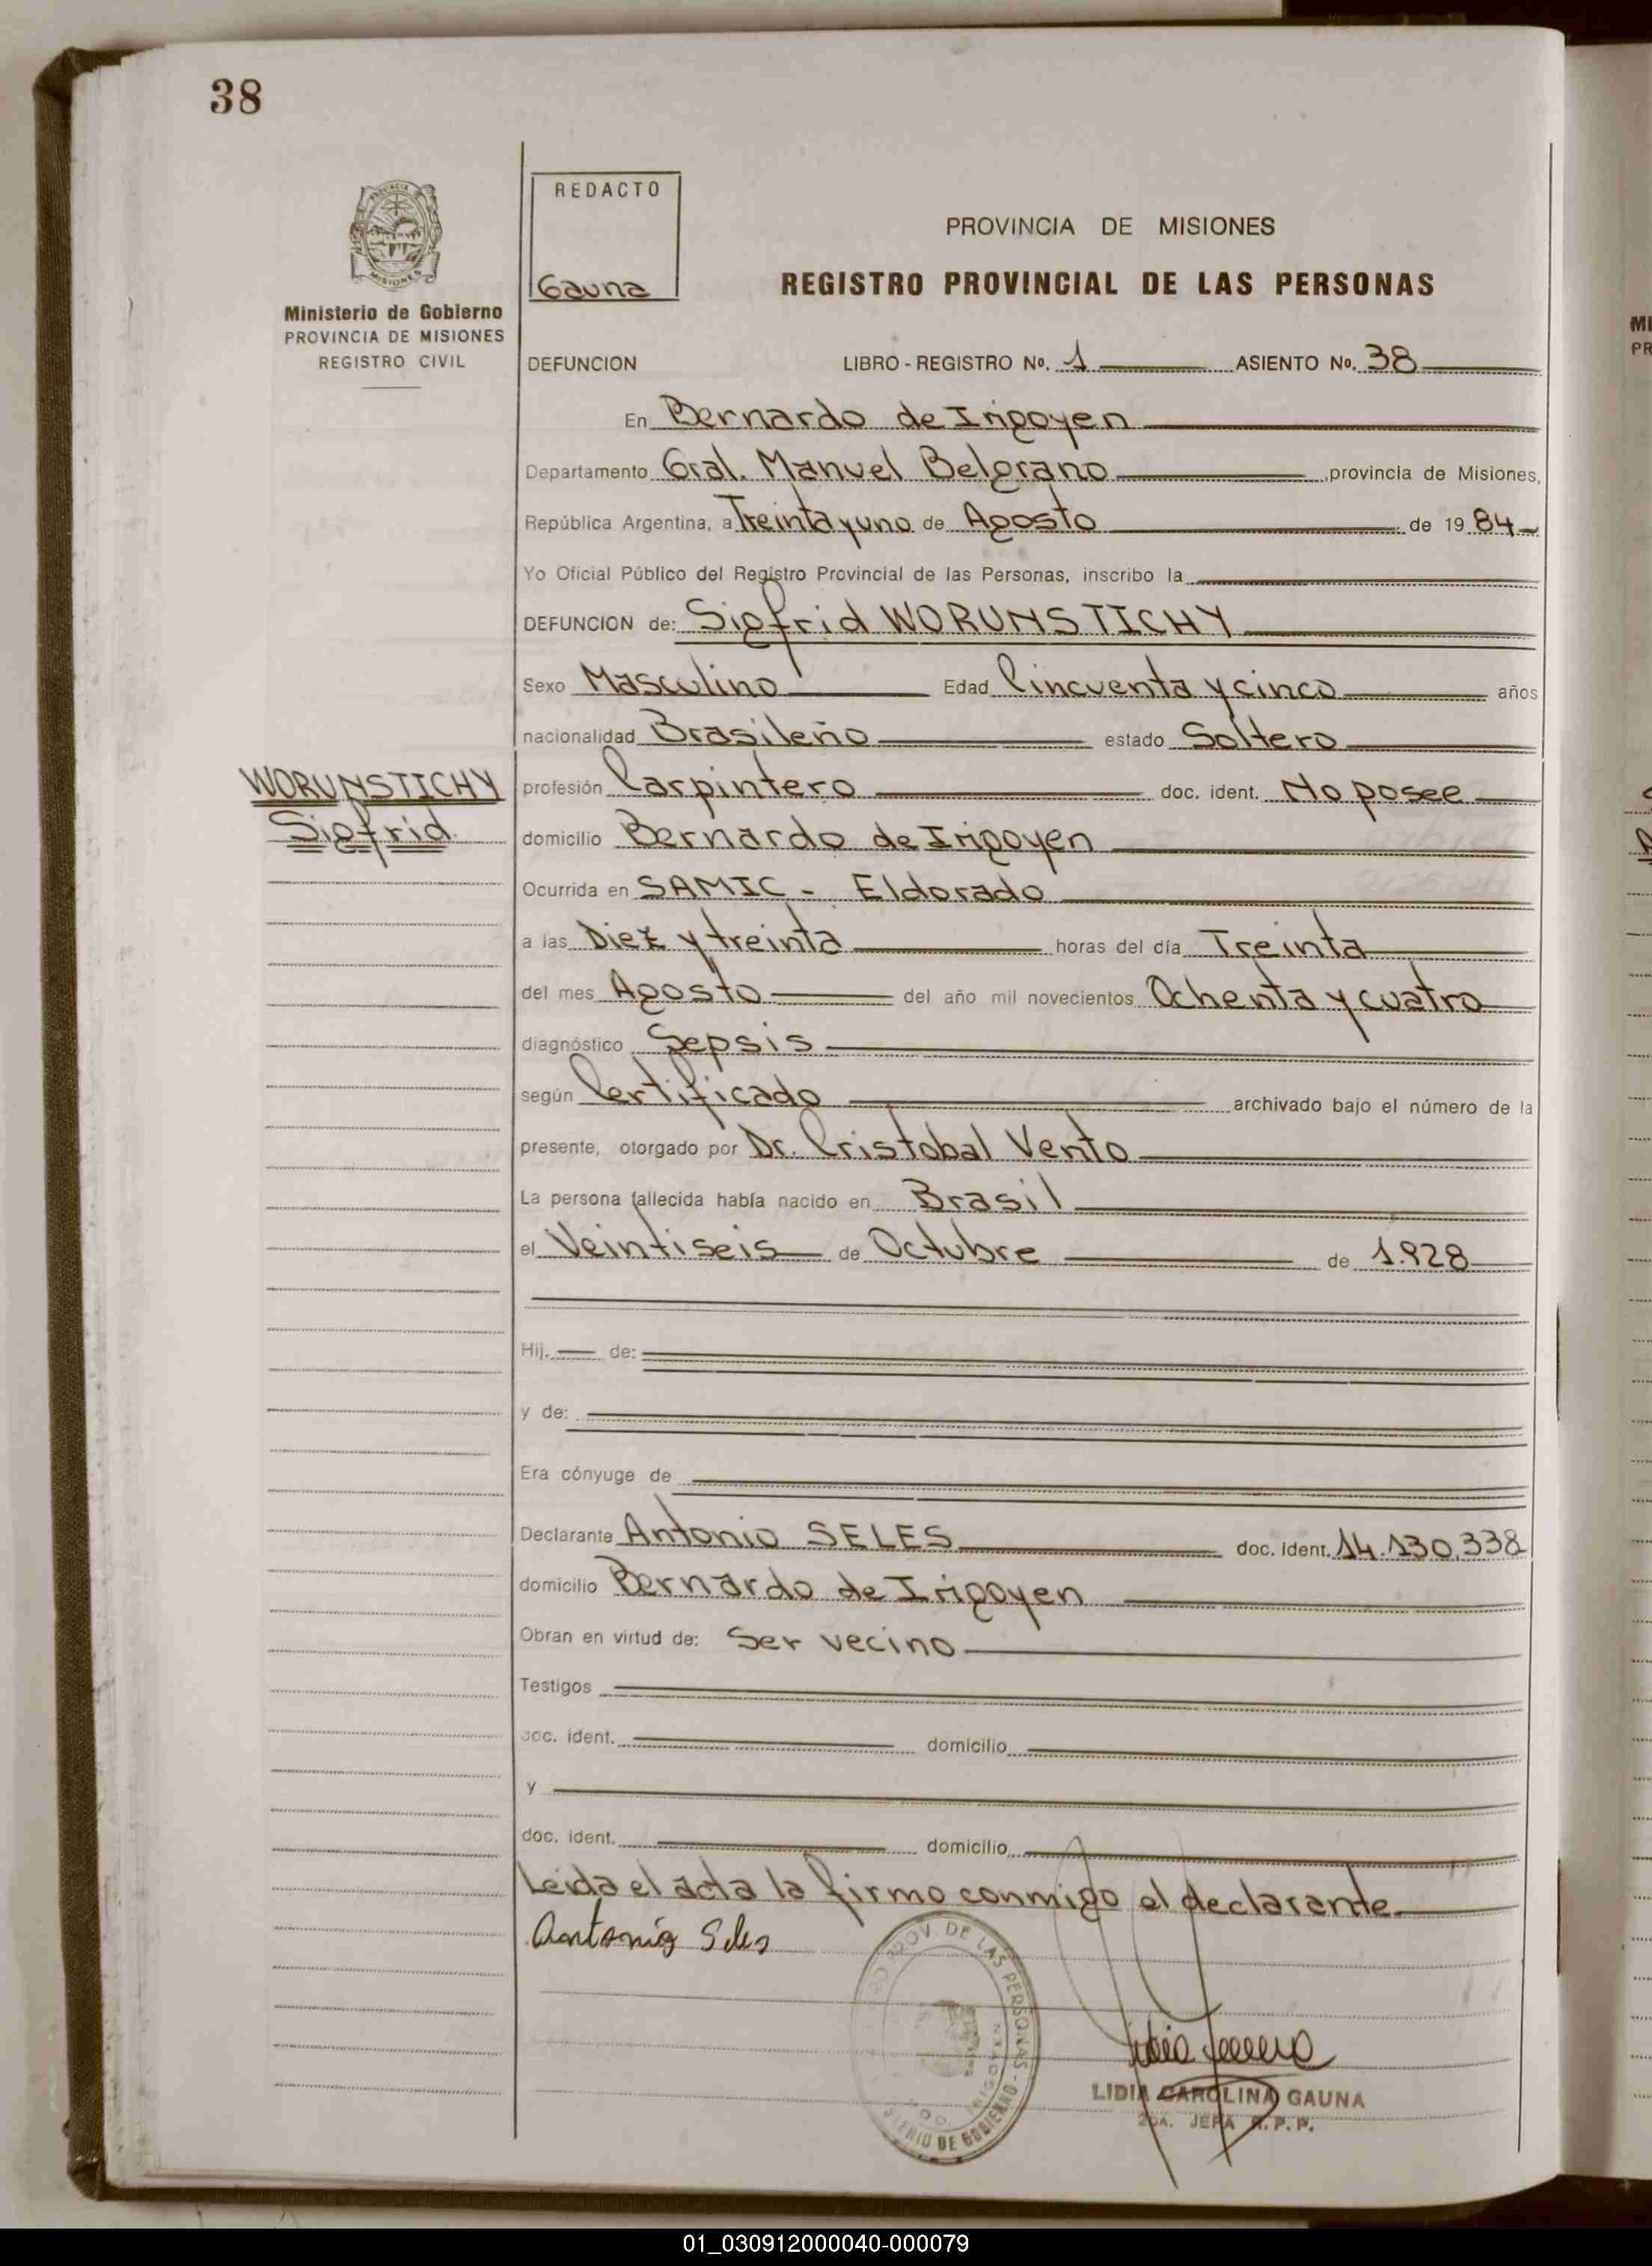 38
REDACTO
Gauna
Ministerio de Gobierno
PROVINCIA DE MISIONES
REGISTRO CIVIL
PROVINCIA DE MISIONES
REGISTRO PROVINCIAL DE LAS PERSONAS
DEFUNCION LIBRO - REGISTRO No. 1 ASIENTO No. 38
En Bernardo de Irigoyen
Departamento Gral. Manuel Belgrano provincia de Misiones,
República Argentina, a Treinta y uno de Agosto de 19 84
Yo Oficial Público del Registro Provincial de las Personas, inscribo la
DEFUNCION de: Sigfrid WORUNSTICHY
Sexo Masculino Edad Cincuenta y cinco años
nacionalidad Brasileño estado Soltero
WORUNSTICHY
Sigfrid
profesión Carpintero doc. ident. No posee
domicilio Bernardo de Irigoyen
Ocurrida en SAMIC - Eldorado
a las Diez y treinta horas del día Treinta
del mes Agosto del año mil novecientos Ochenta y cuatro
diagnóstico Sepsis
según Certificado archivado bajo el número de la
presente, otorgado por Dr. Cristobal Vento
La persona fallecida había nacido en Brasil
el Veintiseis de Octubre de 1.928
Hij. de:
y de:
Era cónyuge de
Declarante Antonio SELES doc. ident. 14.130.338
domicilio Bernardo de Irigoyen
Obran en virtud de: Ser vecino
Testigos
doc. ident. domicilio
y
doc. ident. domicilio
Leida el acta la firmo conmigo el declarante
Antonio Seles
PROV. DE LAS PERSONAS
DE GOBIERNO
LIDIA CAROLINA GAUNA
2DA. JEFA R.P.P.
MI
PR
01_030912000040-000079